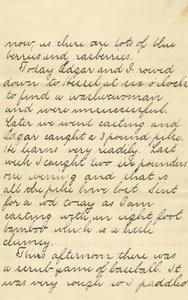 now, is there are lots of blue
berries and rasberries.
Today Edgar and I rowed
down to Hessel at six o'clock
to find a washerwoman
and were unsuccessful.
Later we went casting and
Edgar caught a 3 pound pike.
He learns very readily. Last
week I caught two six pounders
one evening and that is
all the pike I have lost. Sent
for a rod today as I am
casting with an eight foot
bamboo which is a little
clumsy.
This afternoon there was
a scrub game of baseball. It
was very rough so I paddled